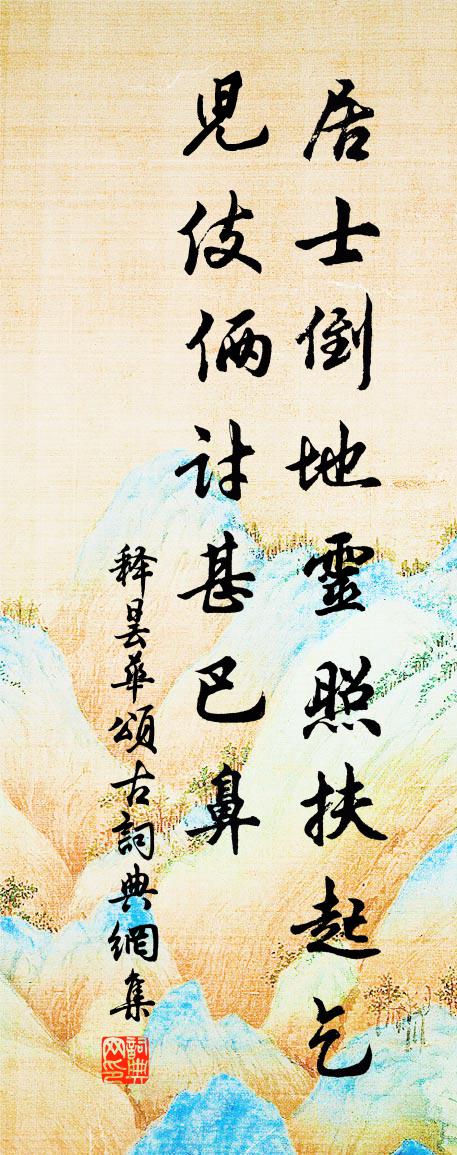 居士倒地靈照扶起乞
兒伎倆討甚巴鼻
释昙華頌古詞典網集
詞典網印